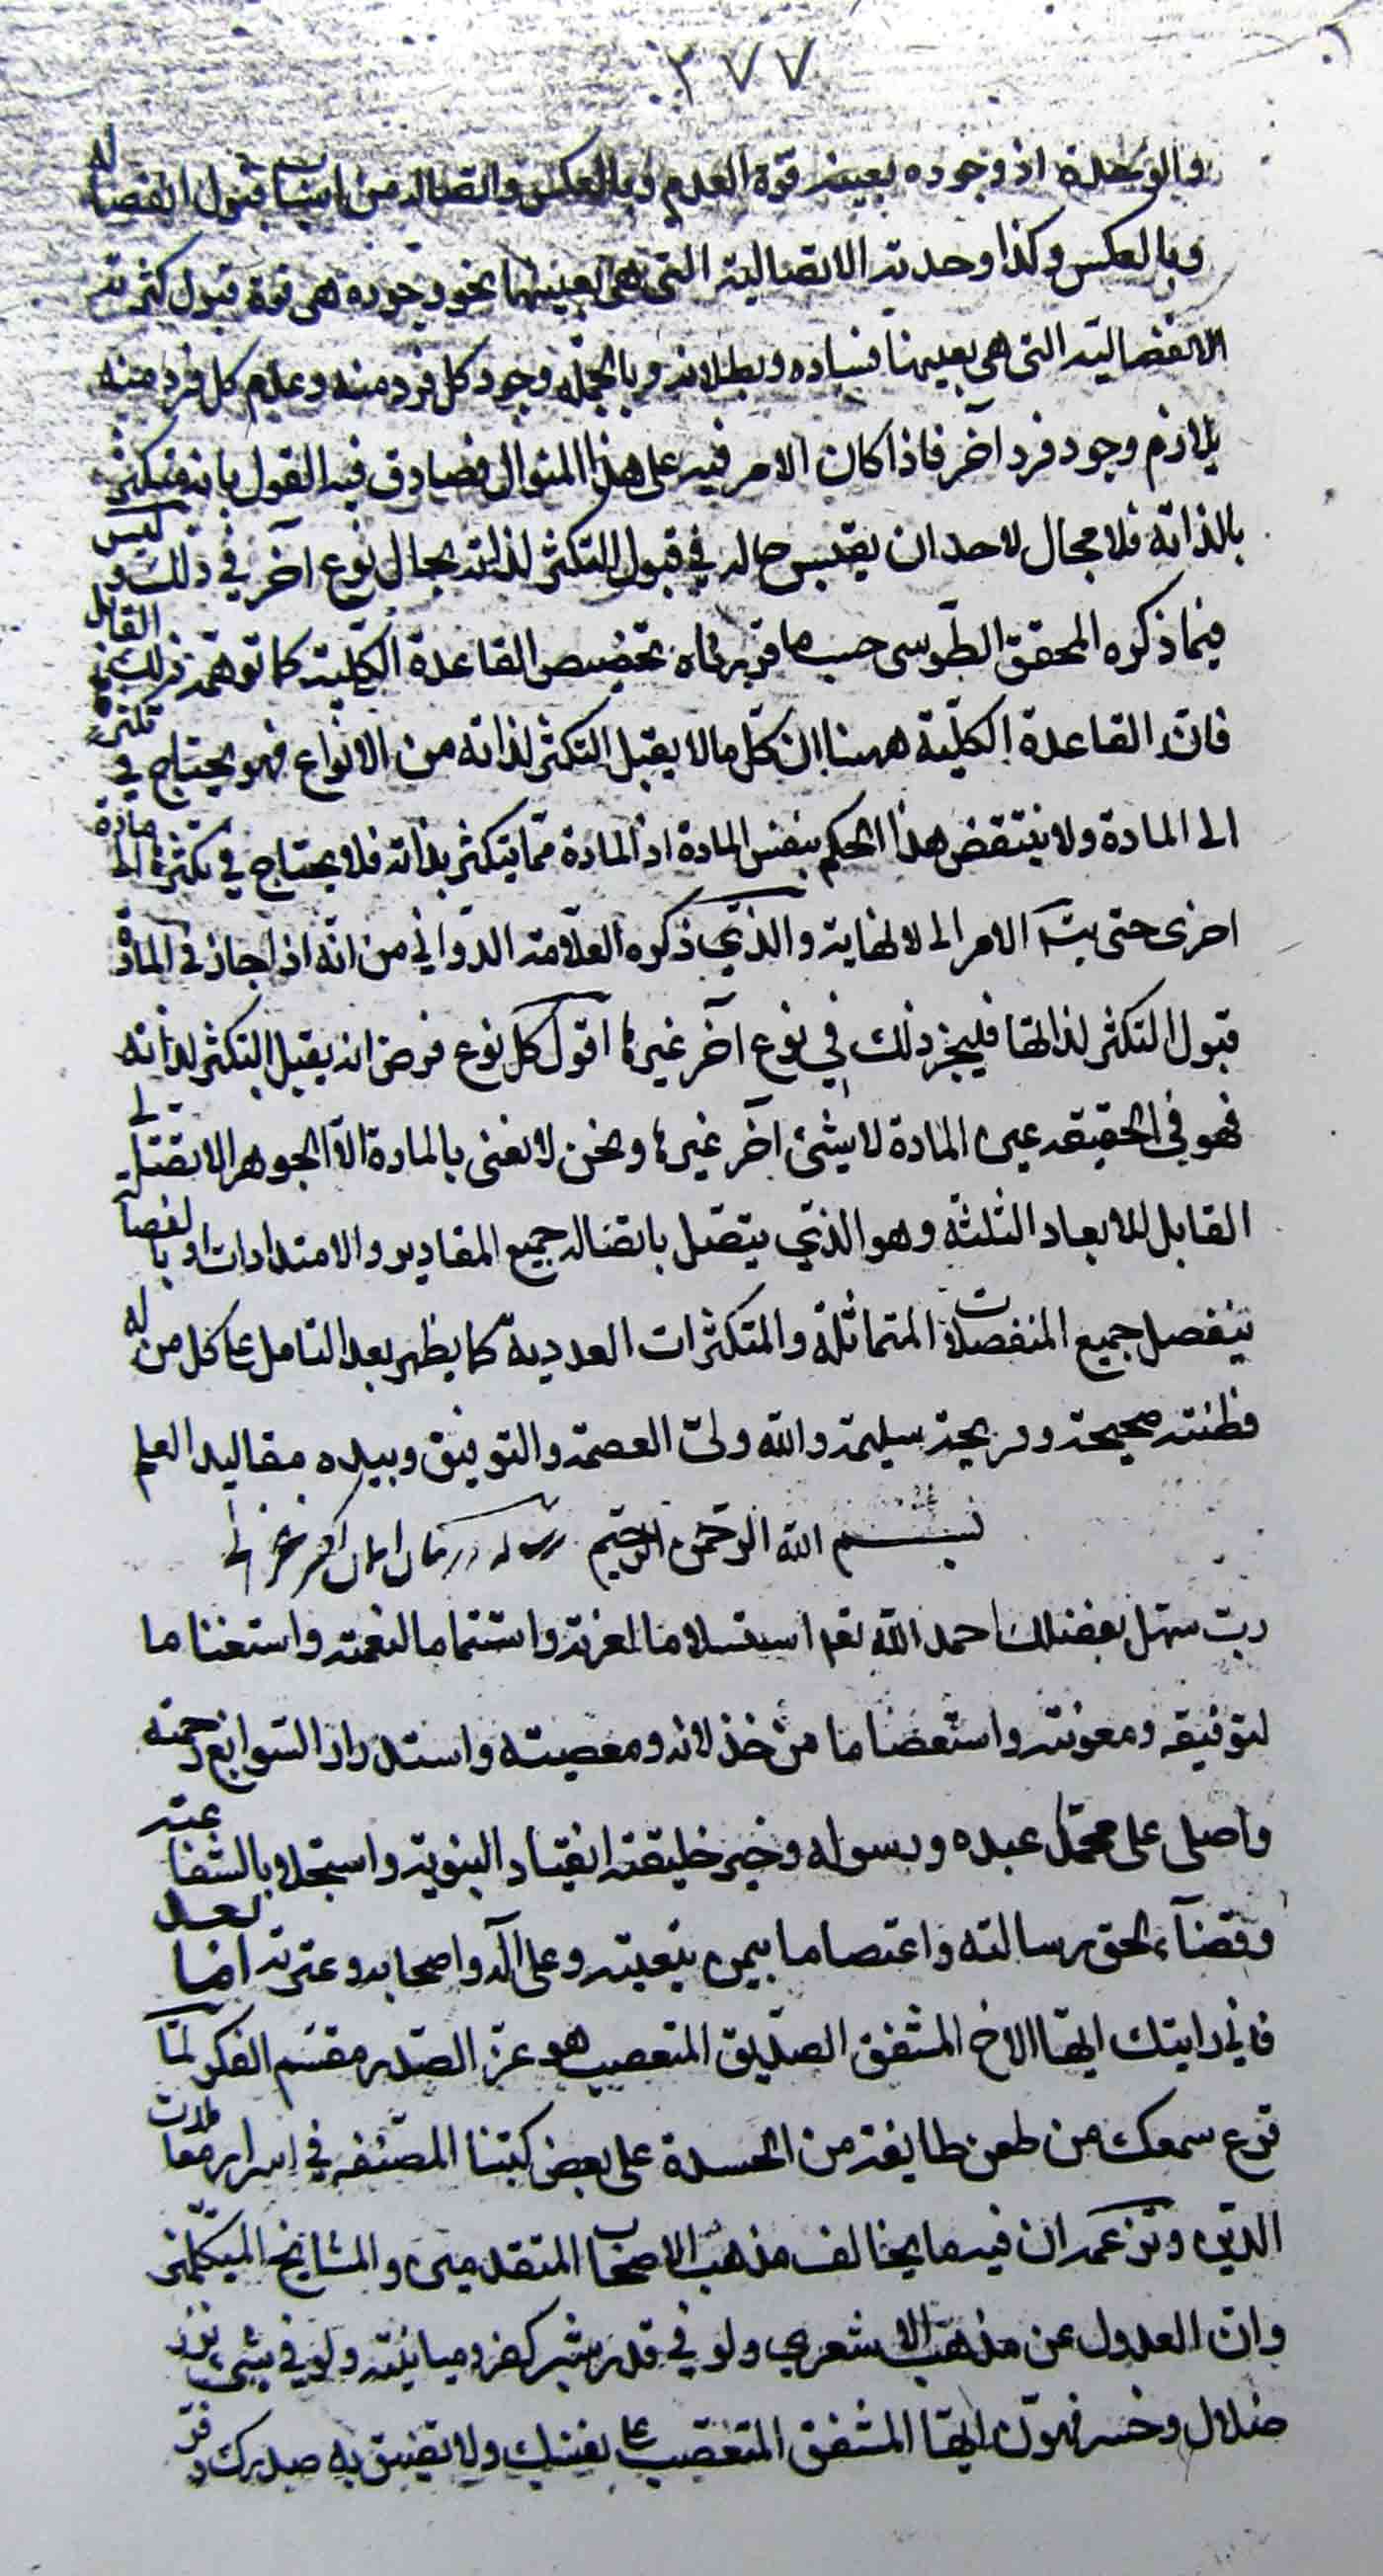 ٢٧٧
والوحدة اذ وجوده بعينه قوة العدم وبالعكس واتصاله من اسباب قبول انفصاله
وبالعكس وكذا وحدته الاتصالية التي هي بعينها نحو وجوده هي قوة قبول كثرته
الانفصالية التي هي بعينها فساده وبطلانه وبالجملة وجود كل فرد منه وعدم كل فرد منه
يلازم وجود فرد آخر فاذا كان الامر فيه على هذا المنوال فصادق فيه القول بانه متكثر
بالذاته فلا مجال لاحد ان يقيس حاله في قبول التكثر لذاته بحال نوع آخر في ذلك وليس
فيما ذكره المحقق الطوسي حسبما قررناه تخصيص القاعدة الكلية كما توهمه ذلك القائل
فان القاعدة الكلية ههنا ان كل ما لا يقبل التكثر لذاته من الانواع فهو يحتاج في تكثره
الى المادة ولا ينتقض هذا الحكم بنفس المادة اذ المادة مما يتكثر بذاته فلا يحتاج في تكثره الى مادة
اخرى حتى يتـ الامر الى لا نهاية والذي ذكره العلامة الدواني من انه اذا جاز في المادة
قبول التكثر لذاتها فليجز ذلك في نوع آخر غيرها اقول كل نوع فرض انه يقبل التكثر لذاته
فهو في الحقيقه عين المادة لا شئ آخر غيرها ونحن لا نعنى بالمادة الا الجوهر الاتصالي
القابل للابعاد الثلثة وهو الذي يتصل باتصاله جميع المقادير والامتدادات وبانفصاله
ينفصل جميع المنفصلات المتماثلة والمتكثرات العددية كما يظهر بعد التامل على كل من له
فطنة صحيحة وقريحة سليمة والله ولى العصمة والتوفيق وبيده مقاليد العلم
بسم الله الرحمن الرحيم رساله در كمال
رب سهل بفضلك احمد الله تعـ استسلاما لعزته واستتماما لنعمته واستغناما
لتوفيقه ومعونته واستعصاما من خذلانه ومعصيته واستدرارا لسوابغ رحمته
واصلى على محمد عبده ورسوله وخير خليقته انقياد النبوته واستجلابا لشفاعته
وقضآء لحق رسالته واعتصاما بيمن نقيبته وعلى آله واصحابه وعترته اما بعد
فاني رايتك ايها الاخ المشفق الصديق المتعصب موغر الصدر مقسم الفكر لما
قرع سمعك من طعن طايفة من الحسدة على بعض كتبنا المصنفه في اسرار معاملات
الدين وتزعمه ان فيه ما يخالف مذهب الاصحاب المتقدمين والمشايخ المتكلمين
وان العدول عن مذهب الاشعري ولو في قدر شبر كفر ومباينته ولو في شئ نزر
ضلال وخسر فهون ايها المشفق المتعصب على نفسك ولا تضيق به صدرك